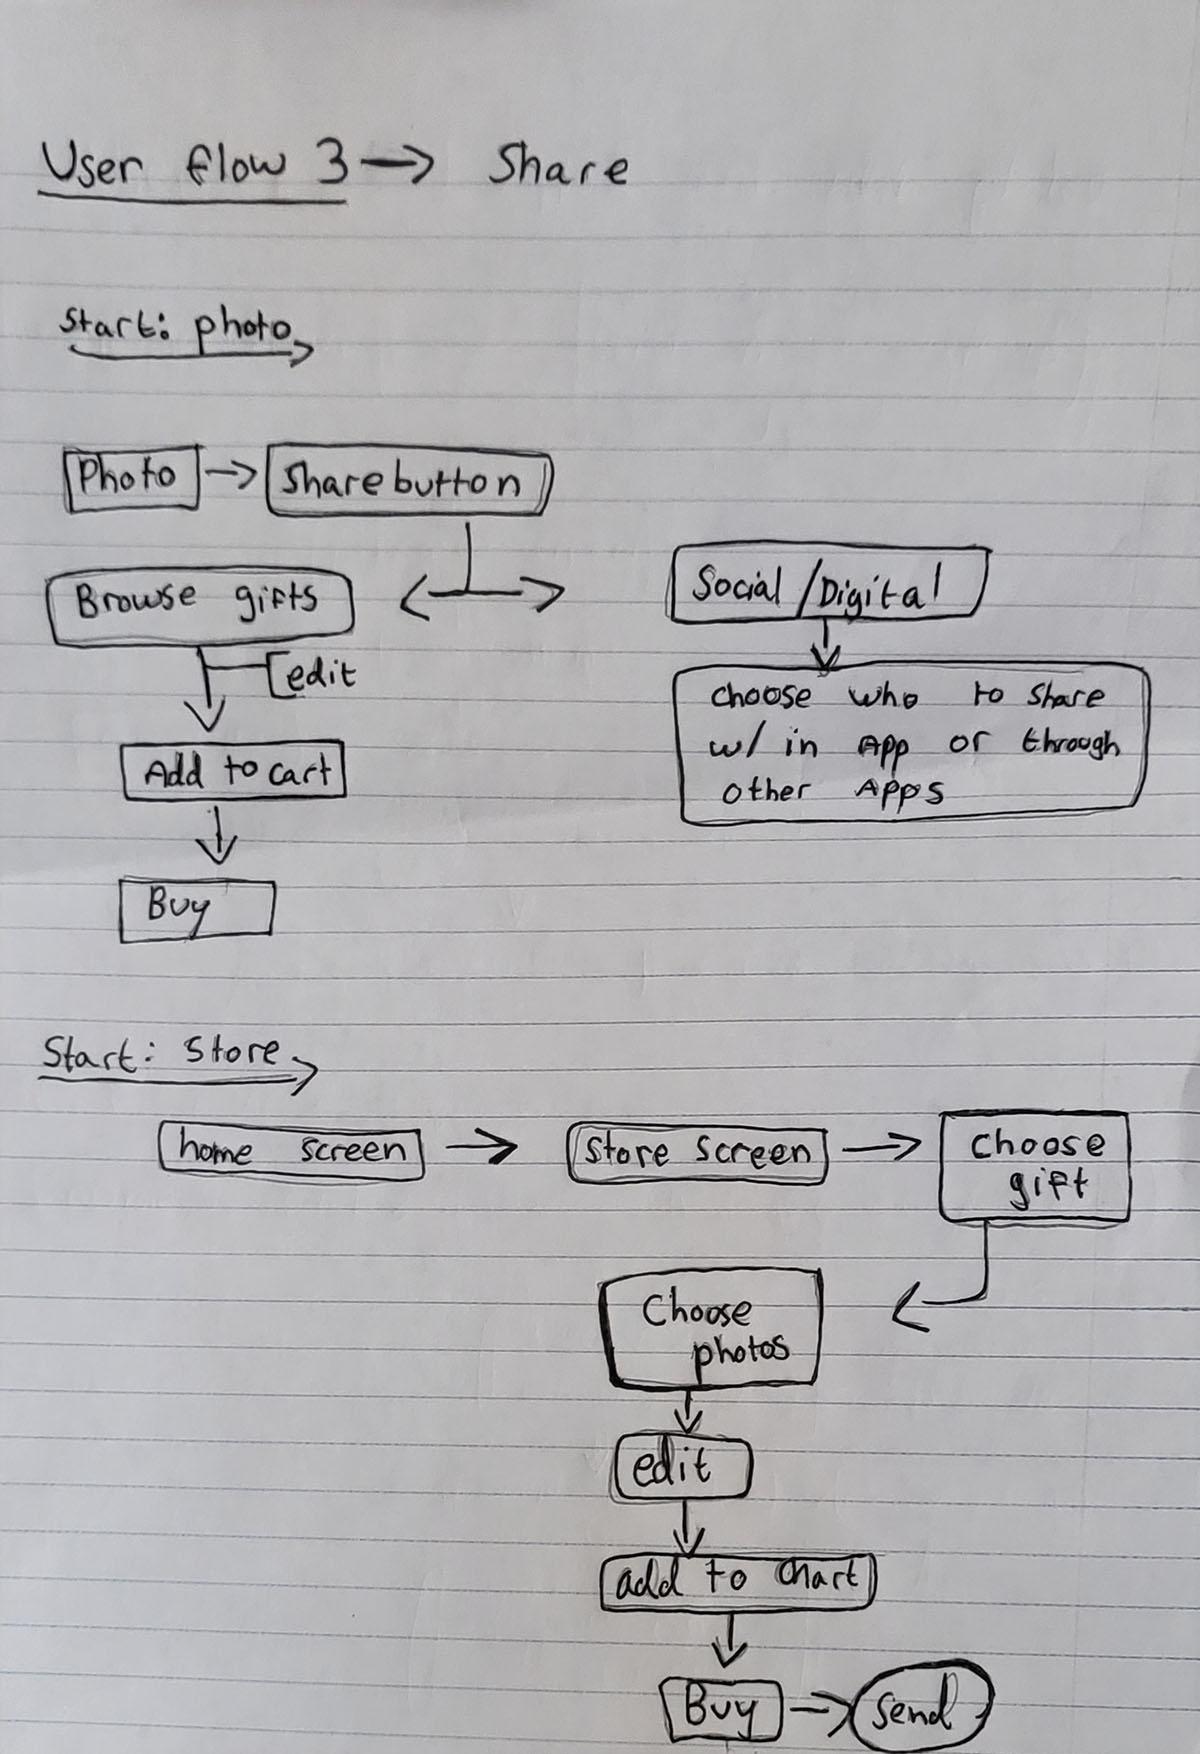 User flow 3 → Share
Start: photo
Photo → Share button
Browse gifts
[edit
Add to cart
Buy
Social/Digital
choose who to share
w/ in App or through
other Apps
Start: Store
home screen → Store screen → choose
gift
Choose
photos
edit
add to chart
Buy → send